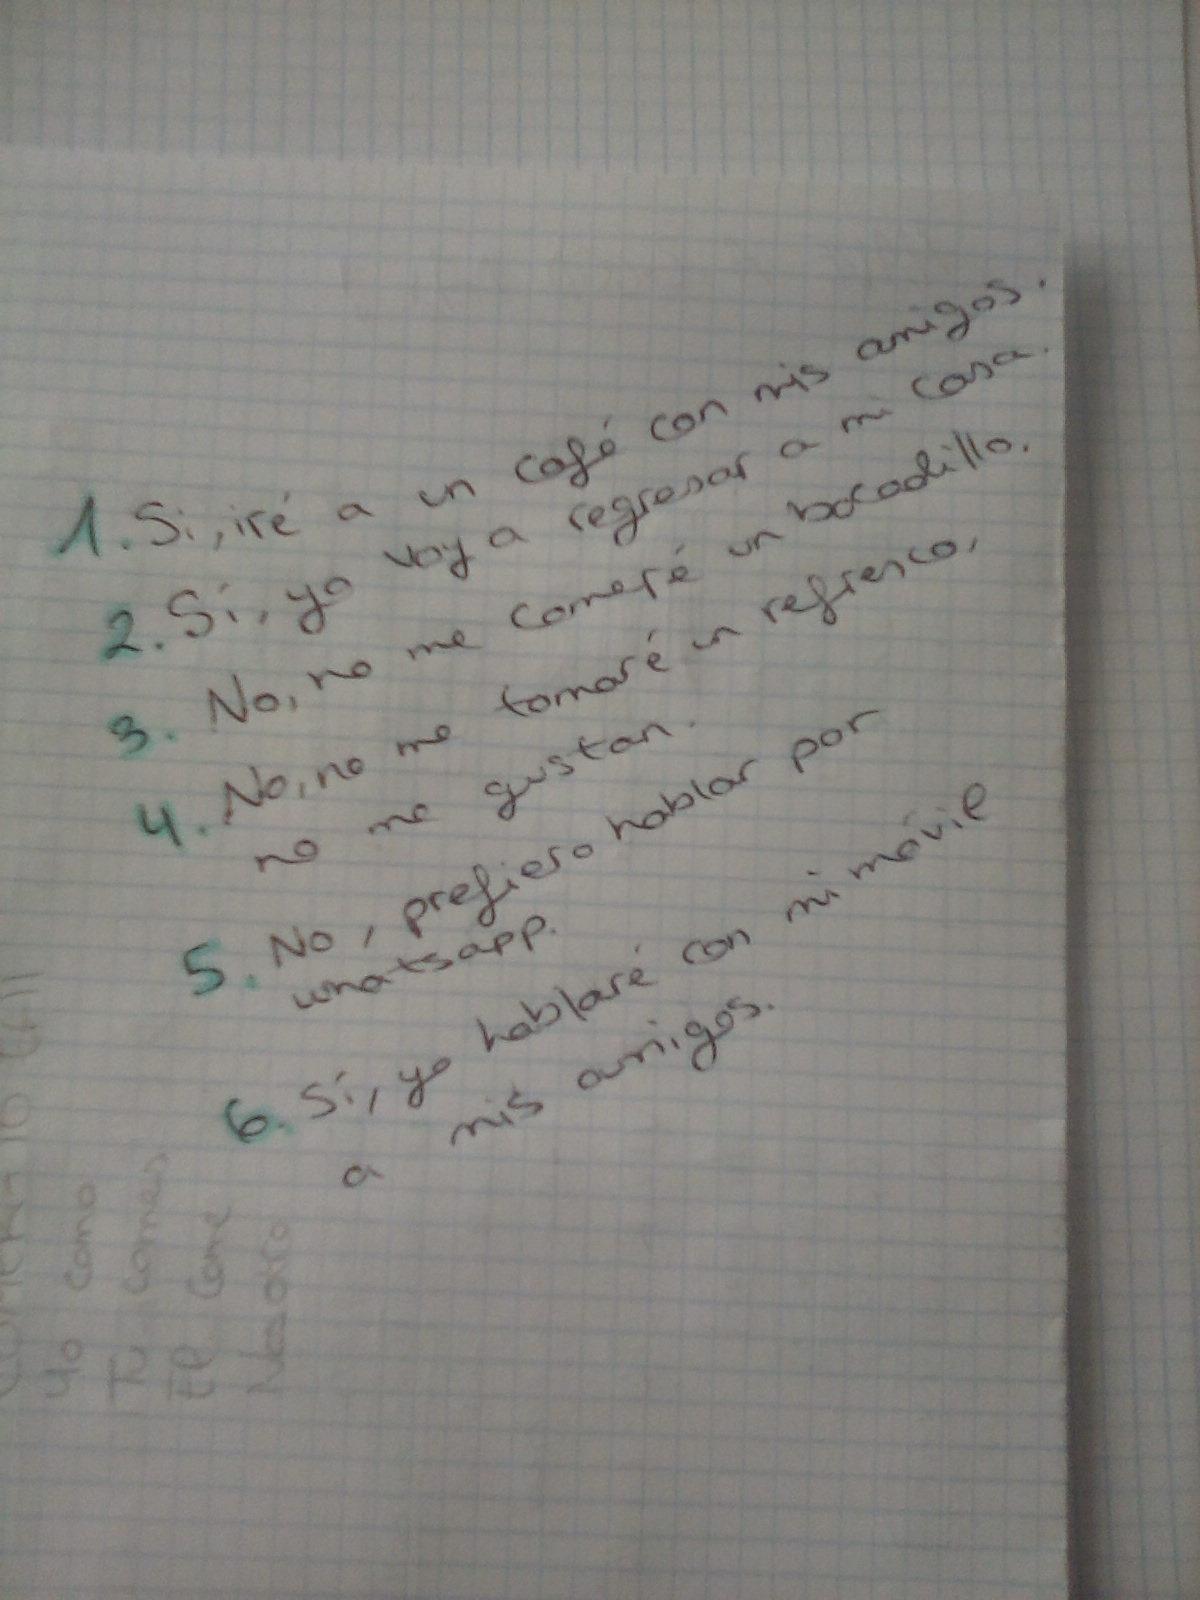 1. Si, iré a un café con mis amigos.
2. Sí, yo voy a regresar a mi casa.
3. No, no me comeré un bocadillo.
4. No, no me tomaré un refresco,
no me gustan.
5. No, prefiero hablar por
whatsapp.
6. Sí, yo hablaré con mi móvil
a mis amigos.
Yo como
Tú comes
Él come
Nosotro